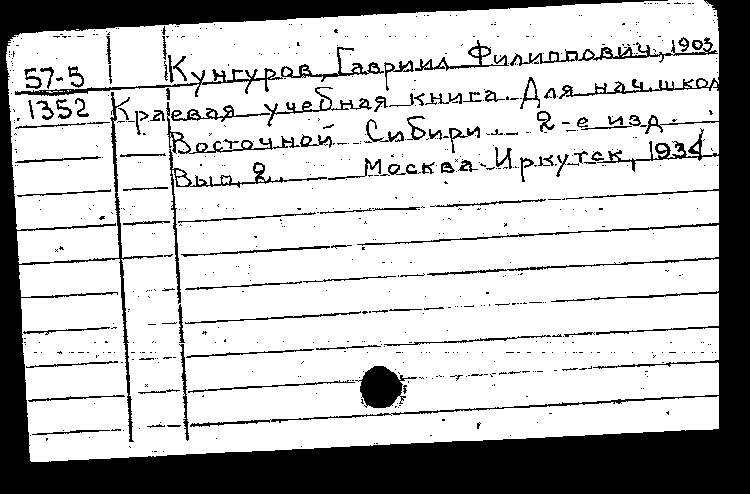 57-5 Кунгуров, Гавриил Филиппович, 1903
1352 Краевая учебная книга. Для нач. школ
Восточной Сибири. 2-е изд.
Вып. 2. Москва-Иркутск, 1934.